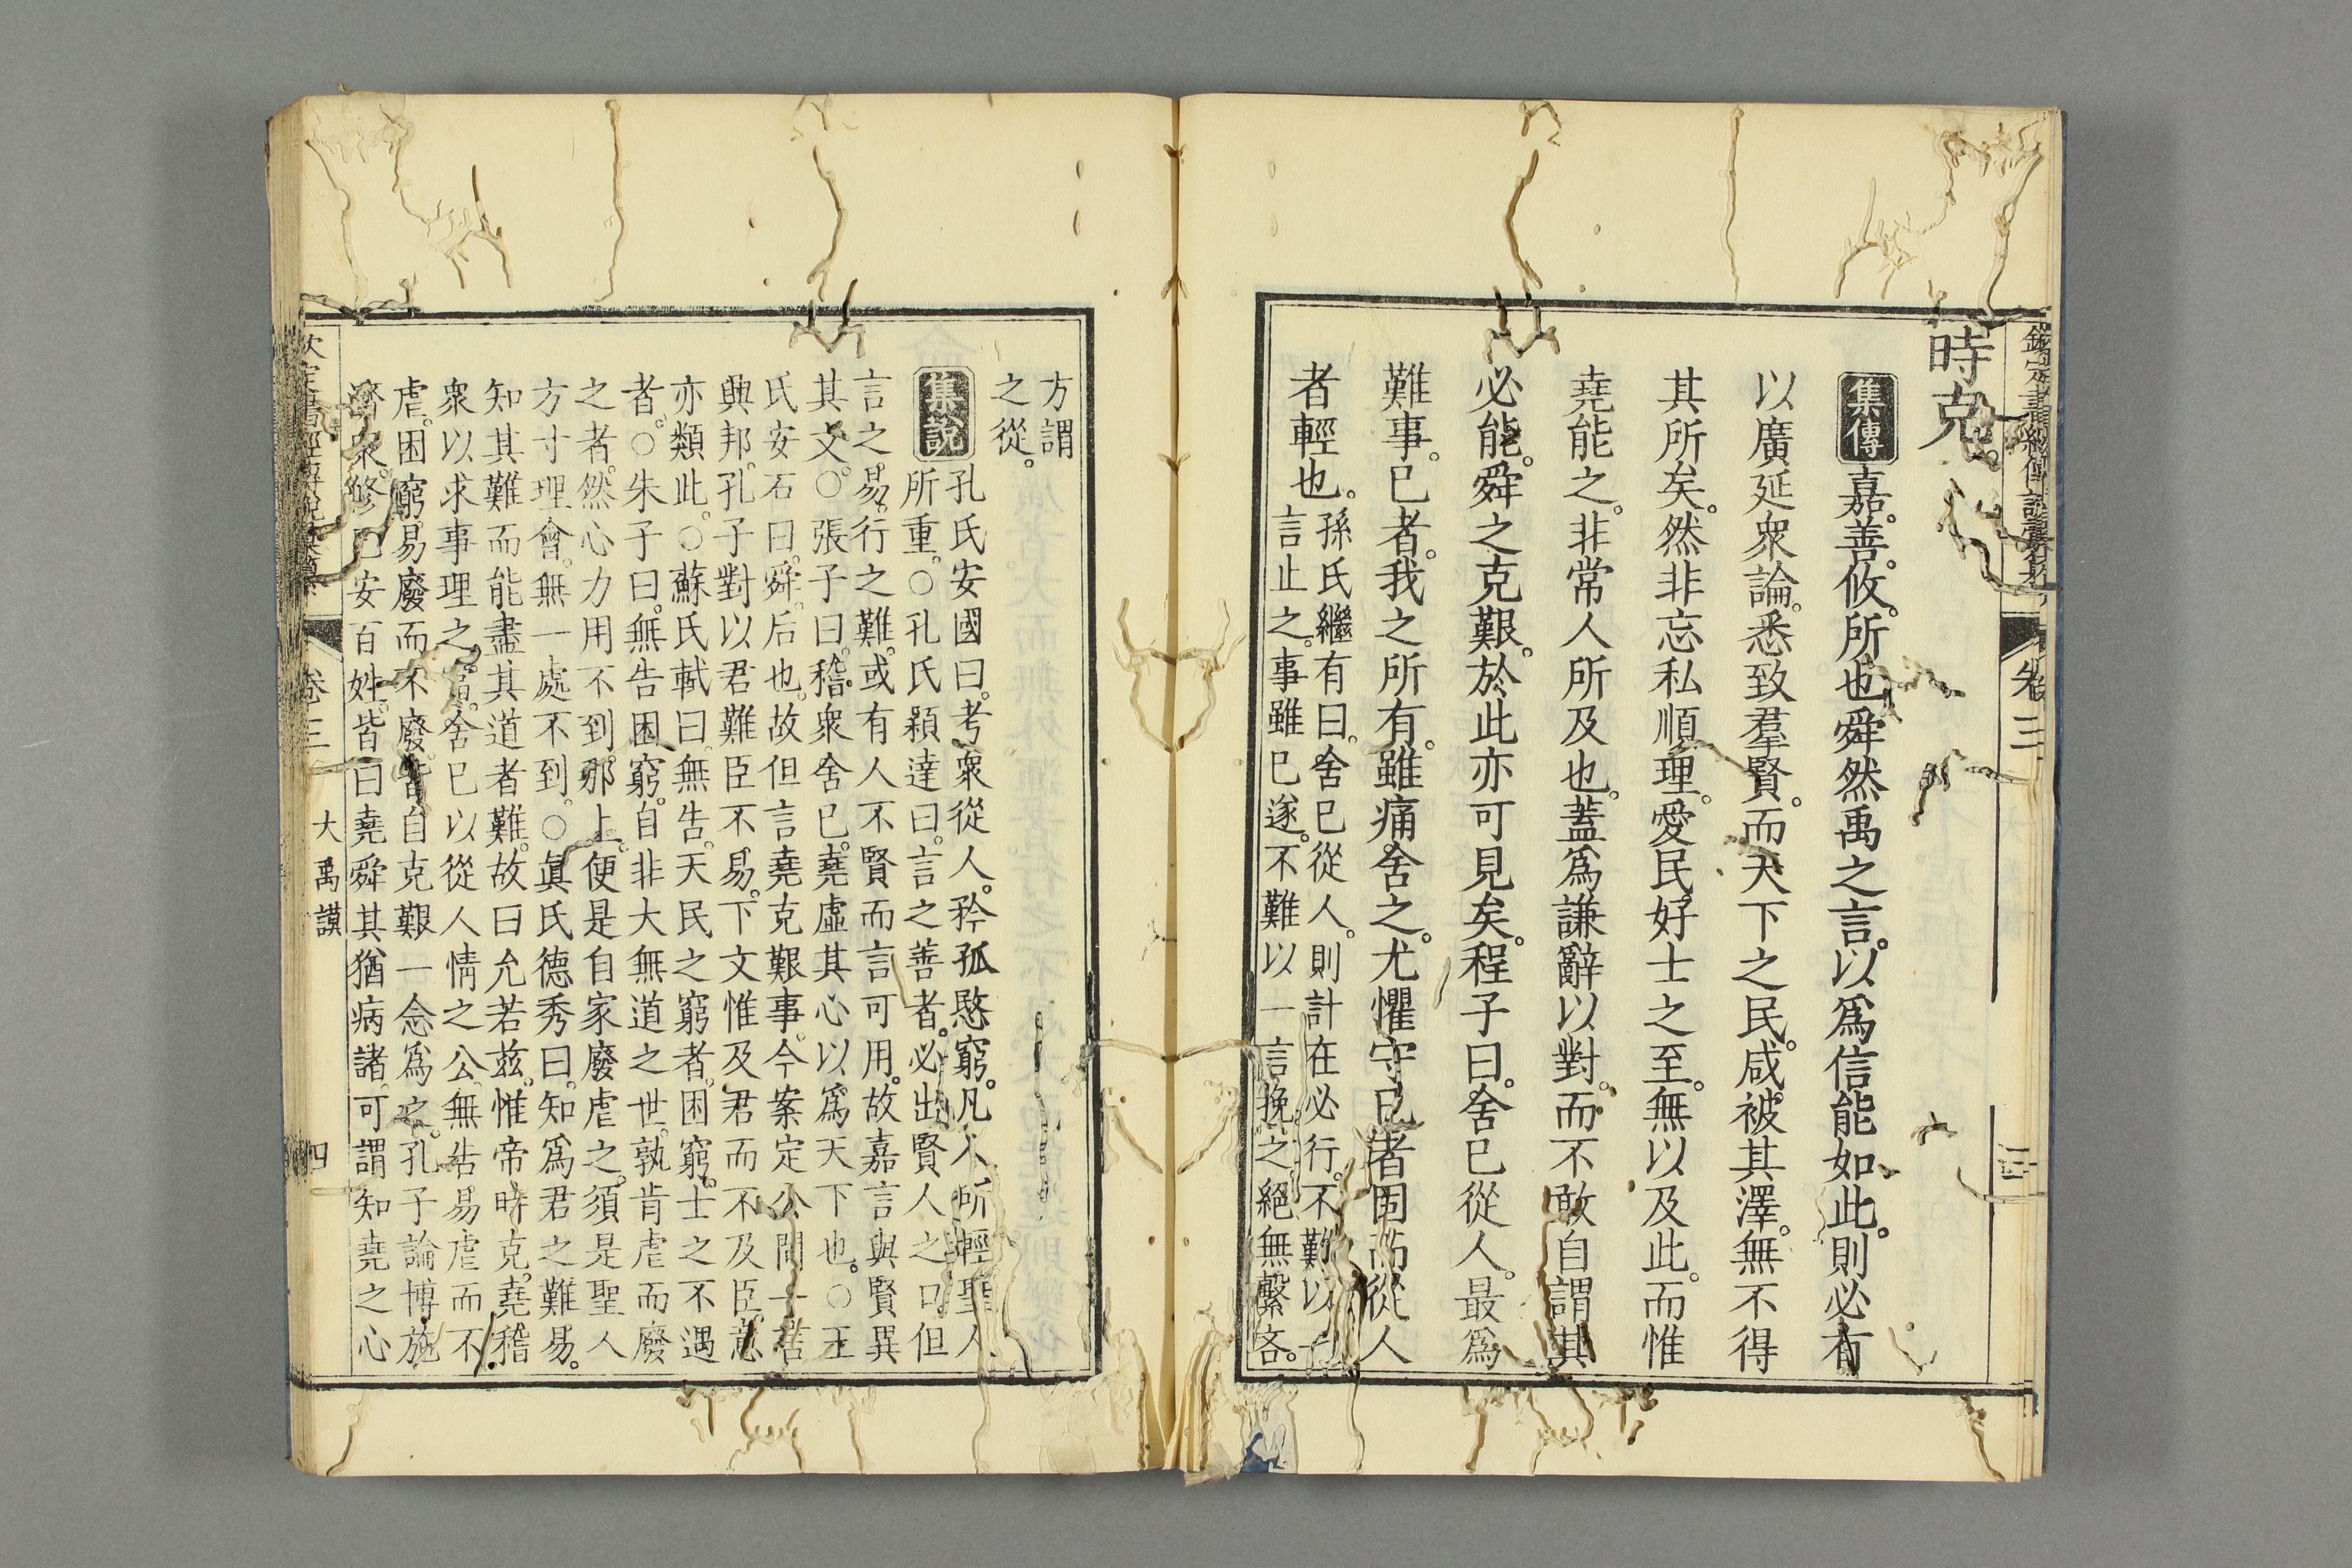 時克。
集傳 嘉。善。攸。所也。舜然禹之言。以爲信能如此。則必有
以廣延衆論。悉致羣賢。而天下之民。咸被其澤。無不得
其所矣。然非忘私順理。愛民好士之至。無以及此。而惟
堯能之。非常人所及也。蓋爲謙辭以對。而不敢自謂其
必能。舜之克艱。於此亦可見矣。程子曰。舍已從人。最爲
難事。已者。我之所有。雖痛舍之。尤懼守已者固而從人
者輕也。
孫氏繼有曰。舍已從人。則計在必行。不難以
言止之。事雖已遂。不難以一言挽之。絕無繫吝。
卷三
三
方謂
之從。
集說
孔氏安國曰。考衆從人。矜孤愍窮。凡人所輕。聖人
所重。○孔氏穎達曰。言之善者。必出賢人之口。但
言之易。行之難。或有人不賢而言可用。故嘉言與賢異
其文。○張子曰。稽衆舍已。堯虛其心以爲天下也。○王
氏安石曰。舜。后也。故但言堯克艱事。今案定公問一言
興邦。孔子對以君難臣不易。下文惟及君而不及臣。意
亦類此。○蘇氏軾曰。無告。天民之窮者。困窮。士之不遇
者。○朱子曰。無告困窮。自非大無道之世。孰肯虐而廢
之者。然心力用不到那上。便是自家廢虐之。須是聖人
方寸理會。無一處不到。○眞氏德秀曰。知爲君之難易。
知其難而能盡其道者難。故曰允若茲。惟帝時克。堯稽
衆以求事理之當。舍已以從人情之公。無告。易虐而不
虐。困窮。易廢而不廢。皆自克艱一念爲之。孔子論博施
濟衆。修已安百姓。皆曰堯舜其猶病諸。可謂知堯之心
卷三
大禹謨
四